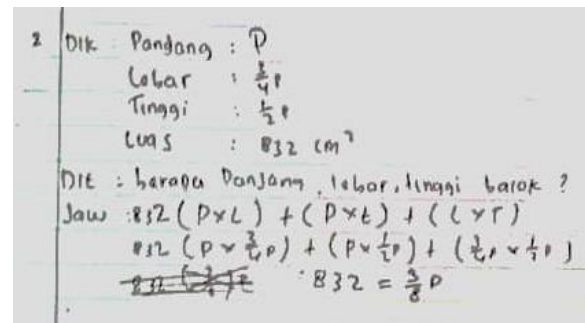 2 Dik : Pandang : P
Lebar : 3/4 P
Tinggi : 1/2 P
Luas : 832 cm²
Dit : barapa Panjang, lebar, tinggi balok ?
Jaw : 832 (P x L) + (P x t) + (L x T)
832 (P x 3/4 P) + (P x 1/2 P) + (3/4 P x 1/2 P)
832 = 3/8 P